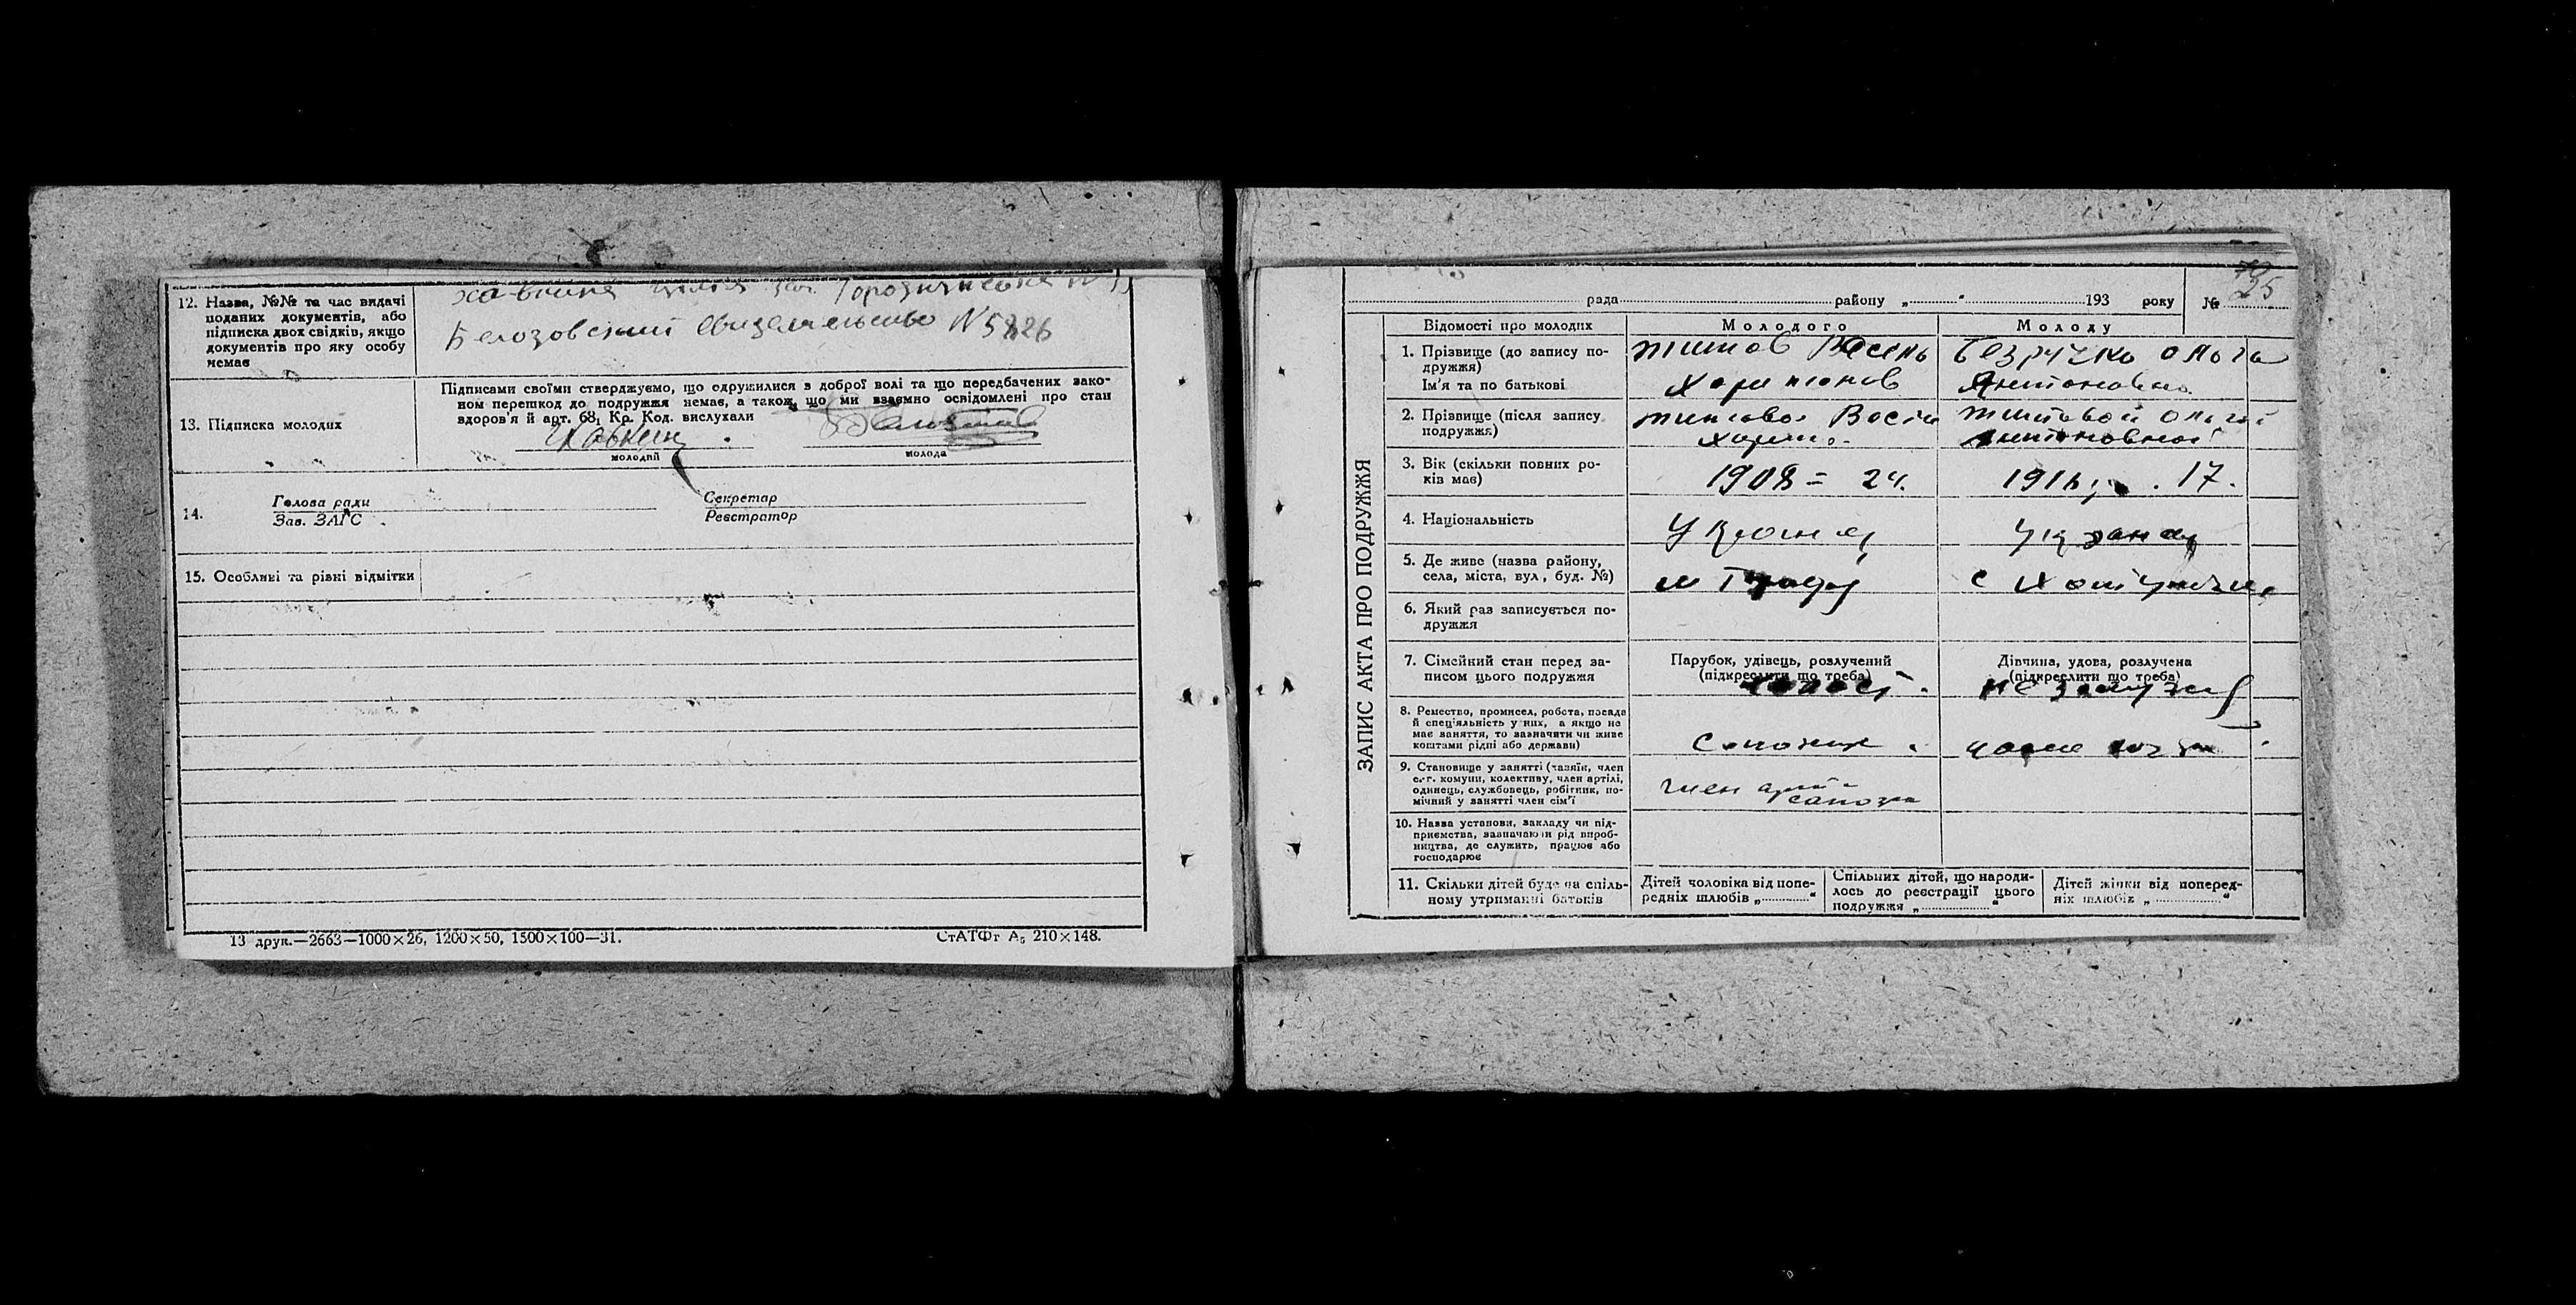 12. Назва, №№ та час видачі
поданих документів, або
підписка двох свідків, якщо
документів про яку особу
немає
Городищенська
Белозовский свидетельство N 5826
13. Підписка молодих
Підписами своїми стверджуємо, що одружилися з доброї волі та що передбачених зако-
ном перешкод до подружжя немає, а також, що ми взаємно освідомлені про стан
здоров'я й арт. 68, Кр. Код. вислухали
Хавкин
молодий
молода
14.
Голова ради
Зав. ЗАГС
Секретар
Реєстратор
15. Особливі та різні відмітки
13 друк.—2663—1000×26, 1200×50, 1500×100—31.
СтАТФт А₅ 210×148.
ЗАПИС АКТА ПРО ПОДРУЖЖЯ
рада району „ “ 193 року № 25
Відомості про молодих
Молодого
Молоду
1. Прізвище (до запису по-
дружжя)
Ім'я та по батькові
Титов Васель
Харитонов
Безручко Ольга
Антоновна
2. Прізвище (після запису
подружжя)
Титова Васил
Харит.
Титовой Ольгой
Антоновной
3. Вік (скільки повних ро-
ків має)
1908 = 24.
17.
4. Національність
Україн
Украін
5. Де живе (назва району,
села, міста, вул, буд. №)
м
с
6. Який раз записується по-
дружжя
7. Сімейний стан перед за-
писом цього подружжя
Парубок, удівець, розлучений
(підкреслити що треба)
холост.
Дівчина, удова, розлучена
(підкреслити що треба)
незамужня
8. Ремество, промисел, робота, посада
й спеціяльність у них, а якщо не
має заняття, то зазначити чи живе
коштами рідні або держави)
Сапожник
9. Становище у занятті (хазяїн, член
с.-г. комуни, колективу, член артілі,
одинець, службовець, робітник, по-
мічний у занятті член сім'ї
член артілі
сапожн
10. Назва установи, закладу чи під-
приємства, зазначаючи рід вироб-
ництва, де служить, працює або
господарює
11. Скільки дітей буде на спіль-
ному утриманні батьків
Дітей чоловіка від попе-
редніх шлюбів „ “
Спільних дітей, що народи-
лось до реєстрації цього
подружжя „ “
Дітей жінки від поперед-
ніх шлюбів „ “